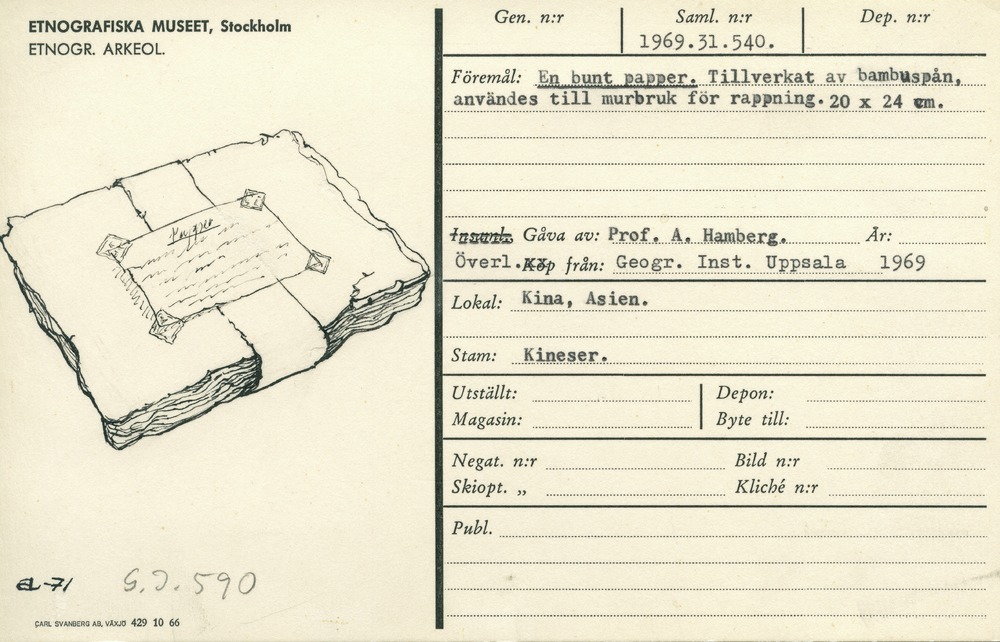 ETNOGRAFISKA MUSEET, Stockholm
ETNOGR. ARKEOL.
Papper
EL-71
G.I. 590
CARL SVANBERG AB, VÄXJÖ 429 10 66
Gen. n:r
Saml. n:r
Dep. n:r
1969.31.540.
Föremål: En bunt papper. Tillverkat av bambuspån,
användes till murbruk för rappning. 20 x 24 cm.
Insaml. Gåva av: Prof. A. Hamberg. År:
Överl. Köp från: Geogr. Inst. Uppsala 1969
Lokal: Kina, Asien.
Stam: Kineser.
Utställt:
Depon:
Magasin:
Byte till:
Negat. n:r
Bild n:r
Skiopt. „
Kliché n:r
Publ.